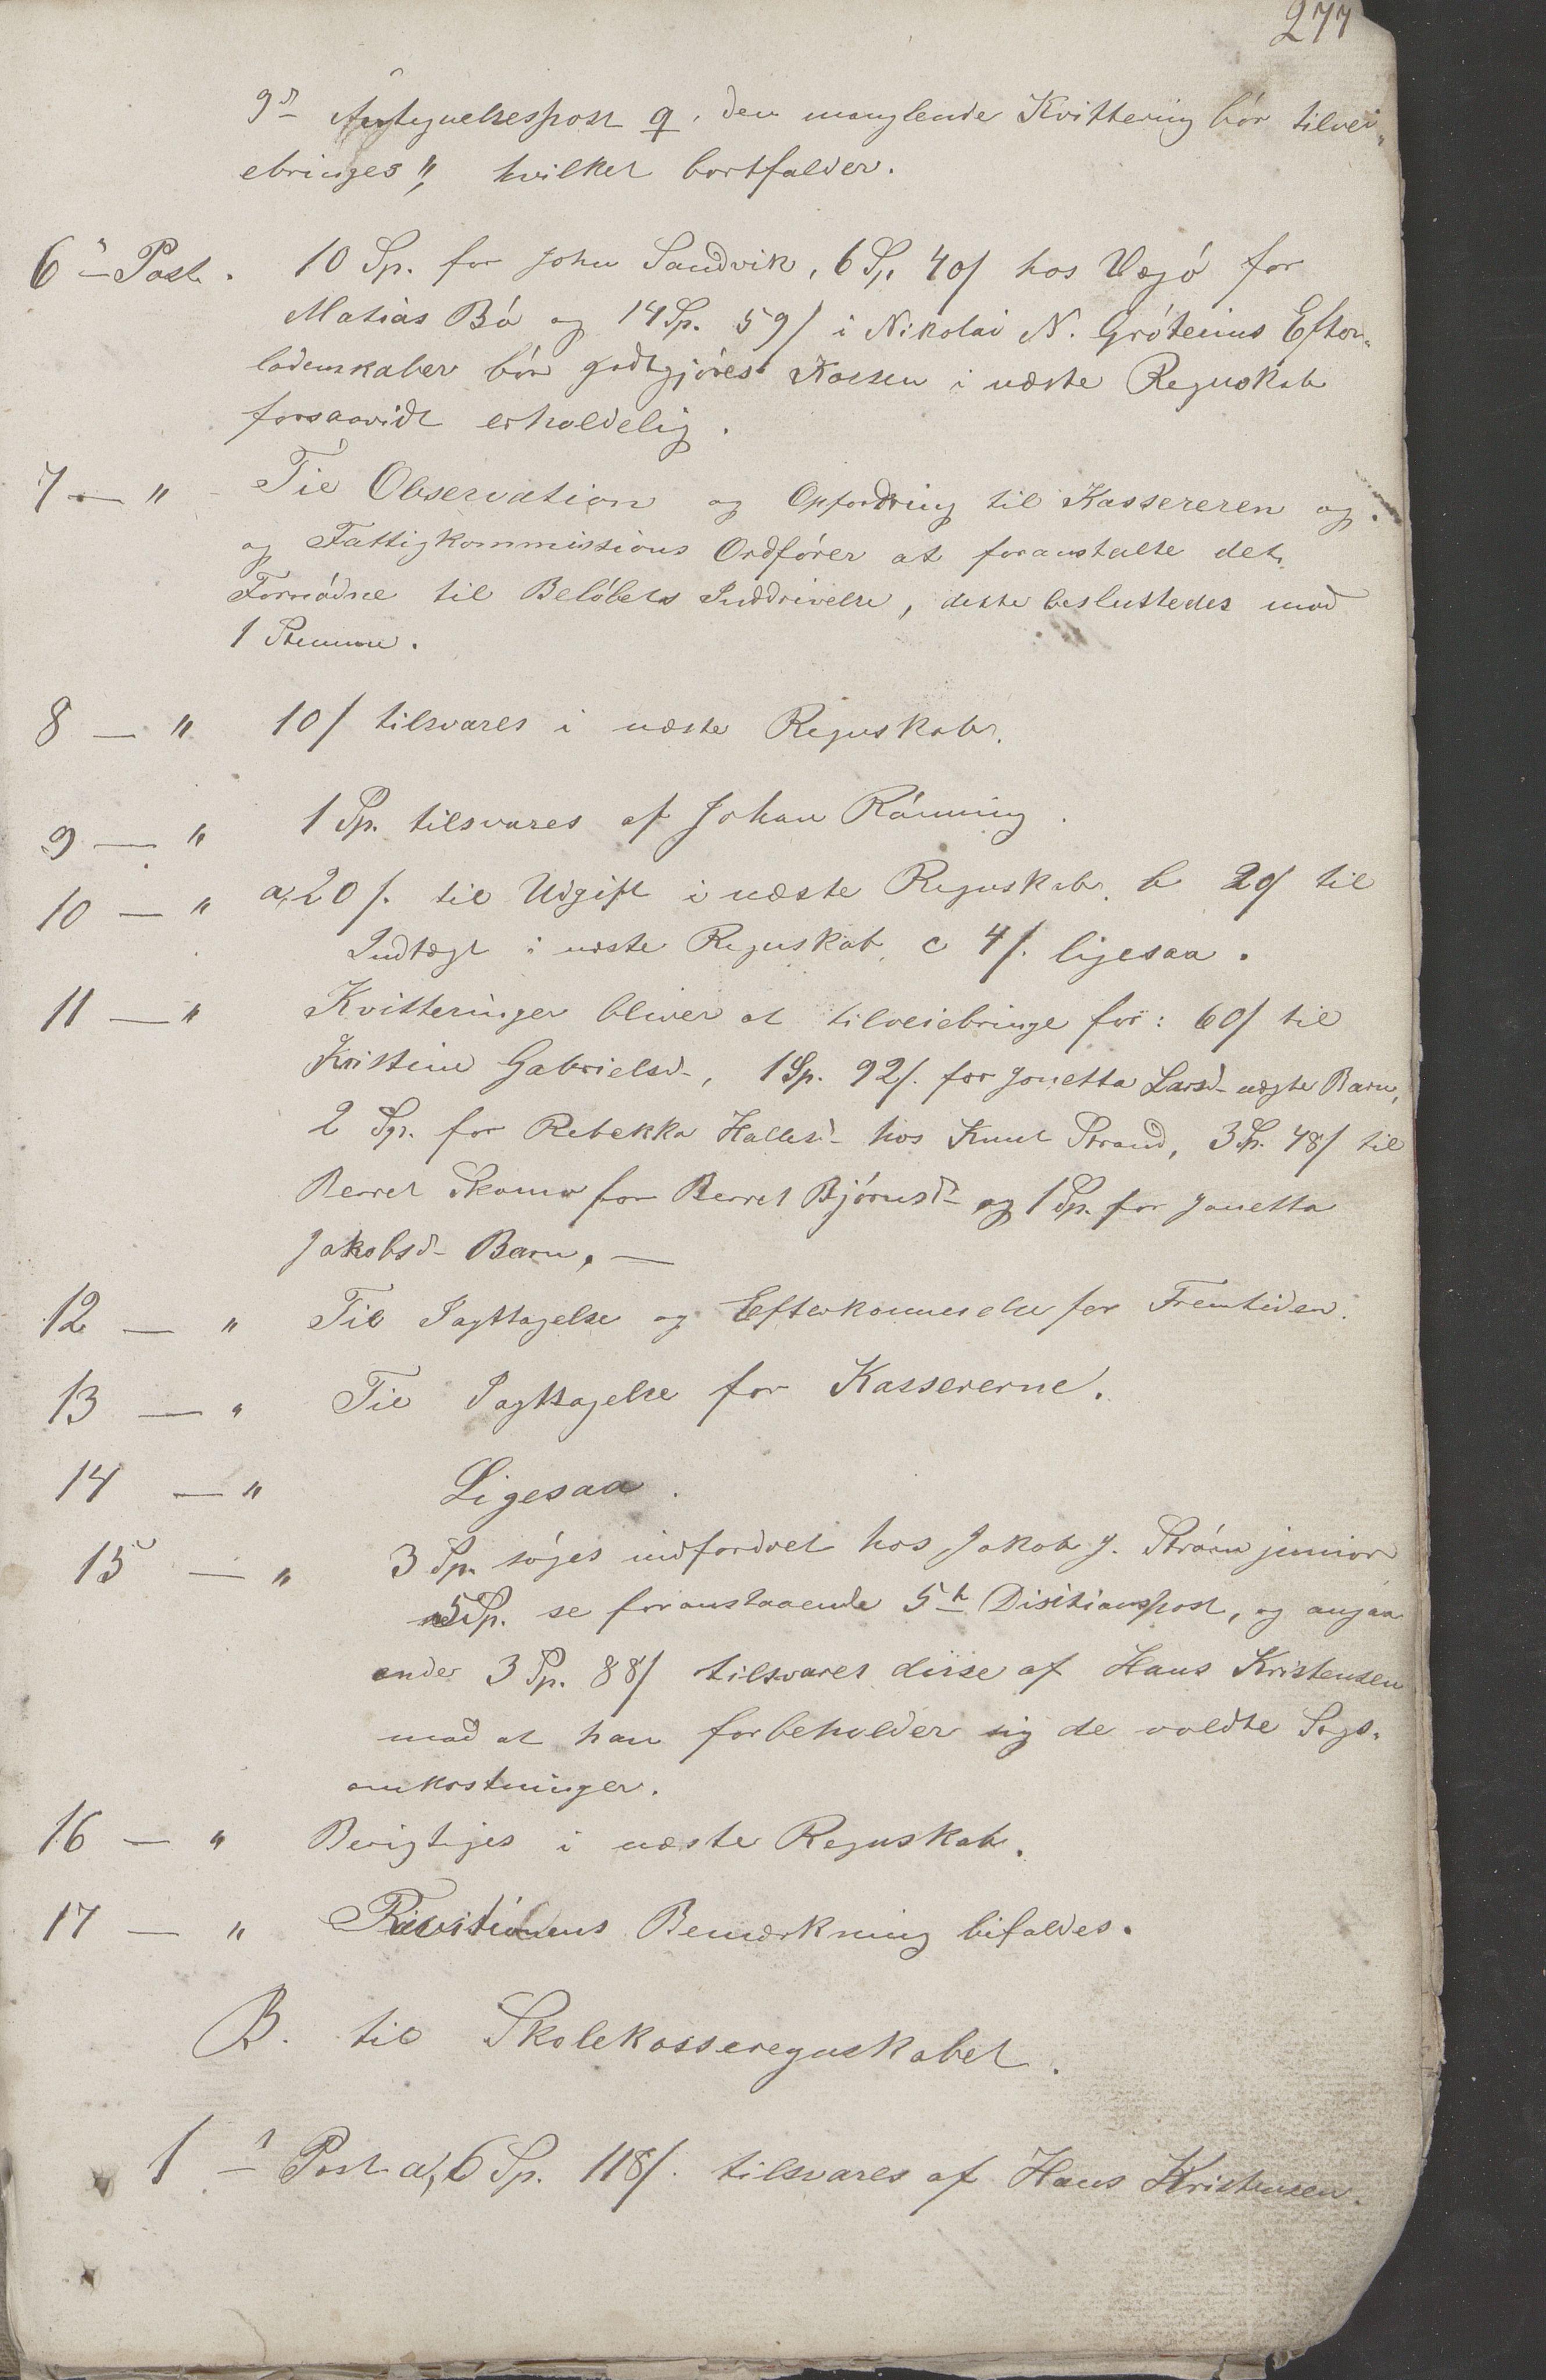 277
9de Antegnelsespost 9, den manglende Kvittering bör tilvei„
ebringes", hvilket bortfalder.
6te Post. 10 Sp. for John Sandvik, 6 Sp. 40/ hos Vægö for
Matias Bö og 14 Sp. 59/ i Nikolai N. Gröteims Efter„
ladenskaber bör godtgjöres Kassen i næste Regnskab
forsaavidt erholdelig.
7 — " Til Observation og Opfordring til Kassereren og
og Fattigkommissions Ordförer at foranstalte det
Fornödne til Belöbets Inddrivelse, dette besluttedes mod
1 Stemme.
8 — " 10/ tilsvares i næste Regnskab.
9 — " 1 Sp. tilsvares af Johan Rönning.
10 — " a, 20/. til Udgift i næste Regnskab. b 20/ til
Indtægt i næste Regnskab, c 4/. ligesaa.
11 — " Kvitteringer bliver at tilveiebringe for: 60/ til
Kristine Gabrielsd-, 1 Sp. 92/. for Jonetta Larsd- uægte Barn,
2 Sp. for Rebekka Hallesd- hos Knut Strand, 3 Sp. 48/ til
Berret Skomo for Berret Björnsd- og 1 Sp. for Jonetta
Jakobsd- Barn. —
12 — " Til Iagttagelse og Efterkommelse for Fremtiden.
13 — " Til Iagttagelse for Kassererne.
14 — " Ligesaa.
15 — " 3 Sp. söges indfordret hos Jakob J. Ström junior
5 Sp. se foranstaaende 5te Disitionspost, og angaa
ender 3 Sp. 88/ tilsvares disse af Hans Kristensen
mod at han forbeholder sig de voldte Sags„
omkostninger.
16 — " Berigtiges i næste Regnskab.
17 — " Revisionens Bemærkning bifaldes.
B. til Skolekasseregnskabet.
1ste Post a, 6 Sp. 118/. tilsvares af Hans Kristensen.